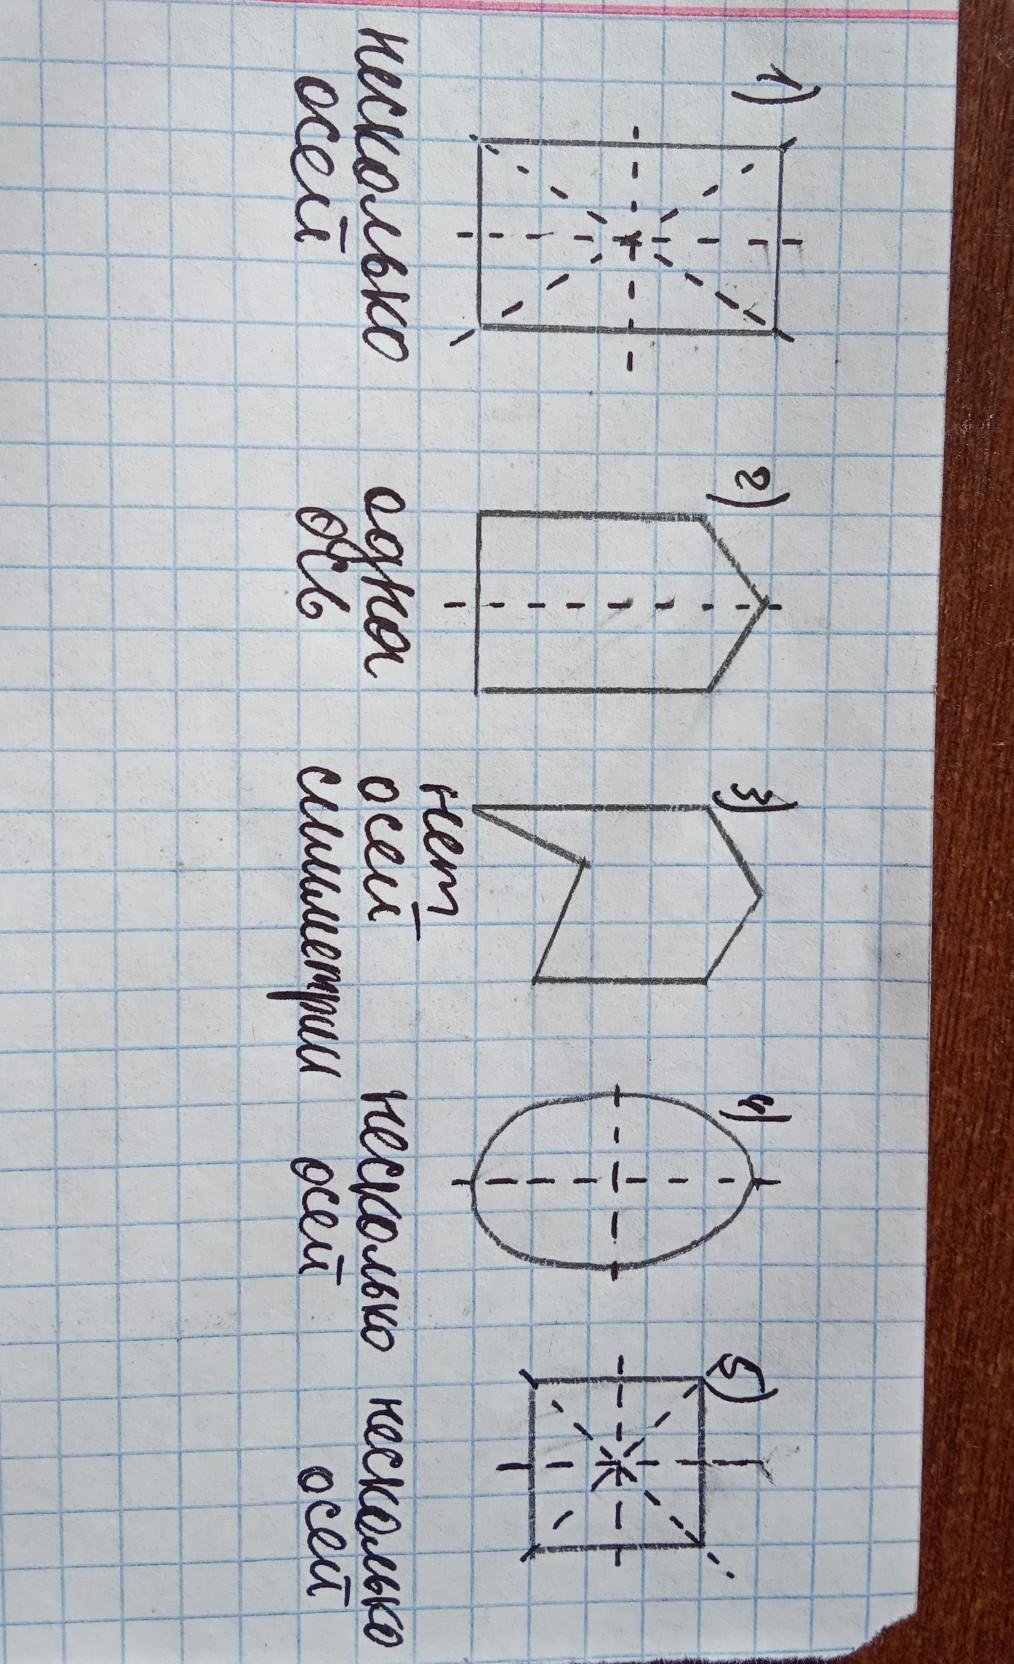 1)
2)
3)
4)
5)
несколько
осей
одна
ось
нет
осей
симметрии
несколько
осей
несколько
осей